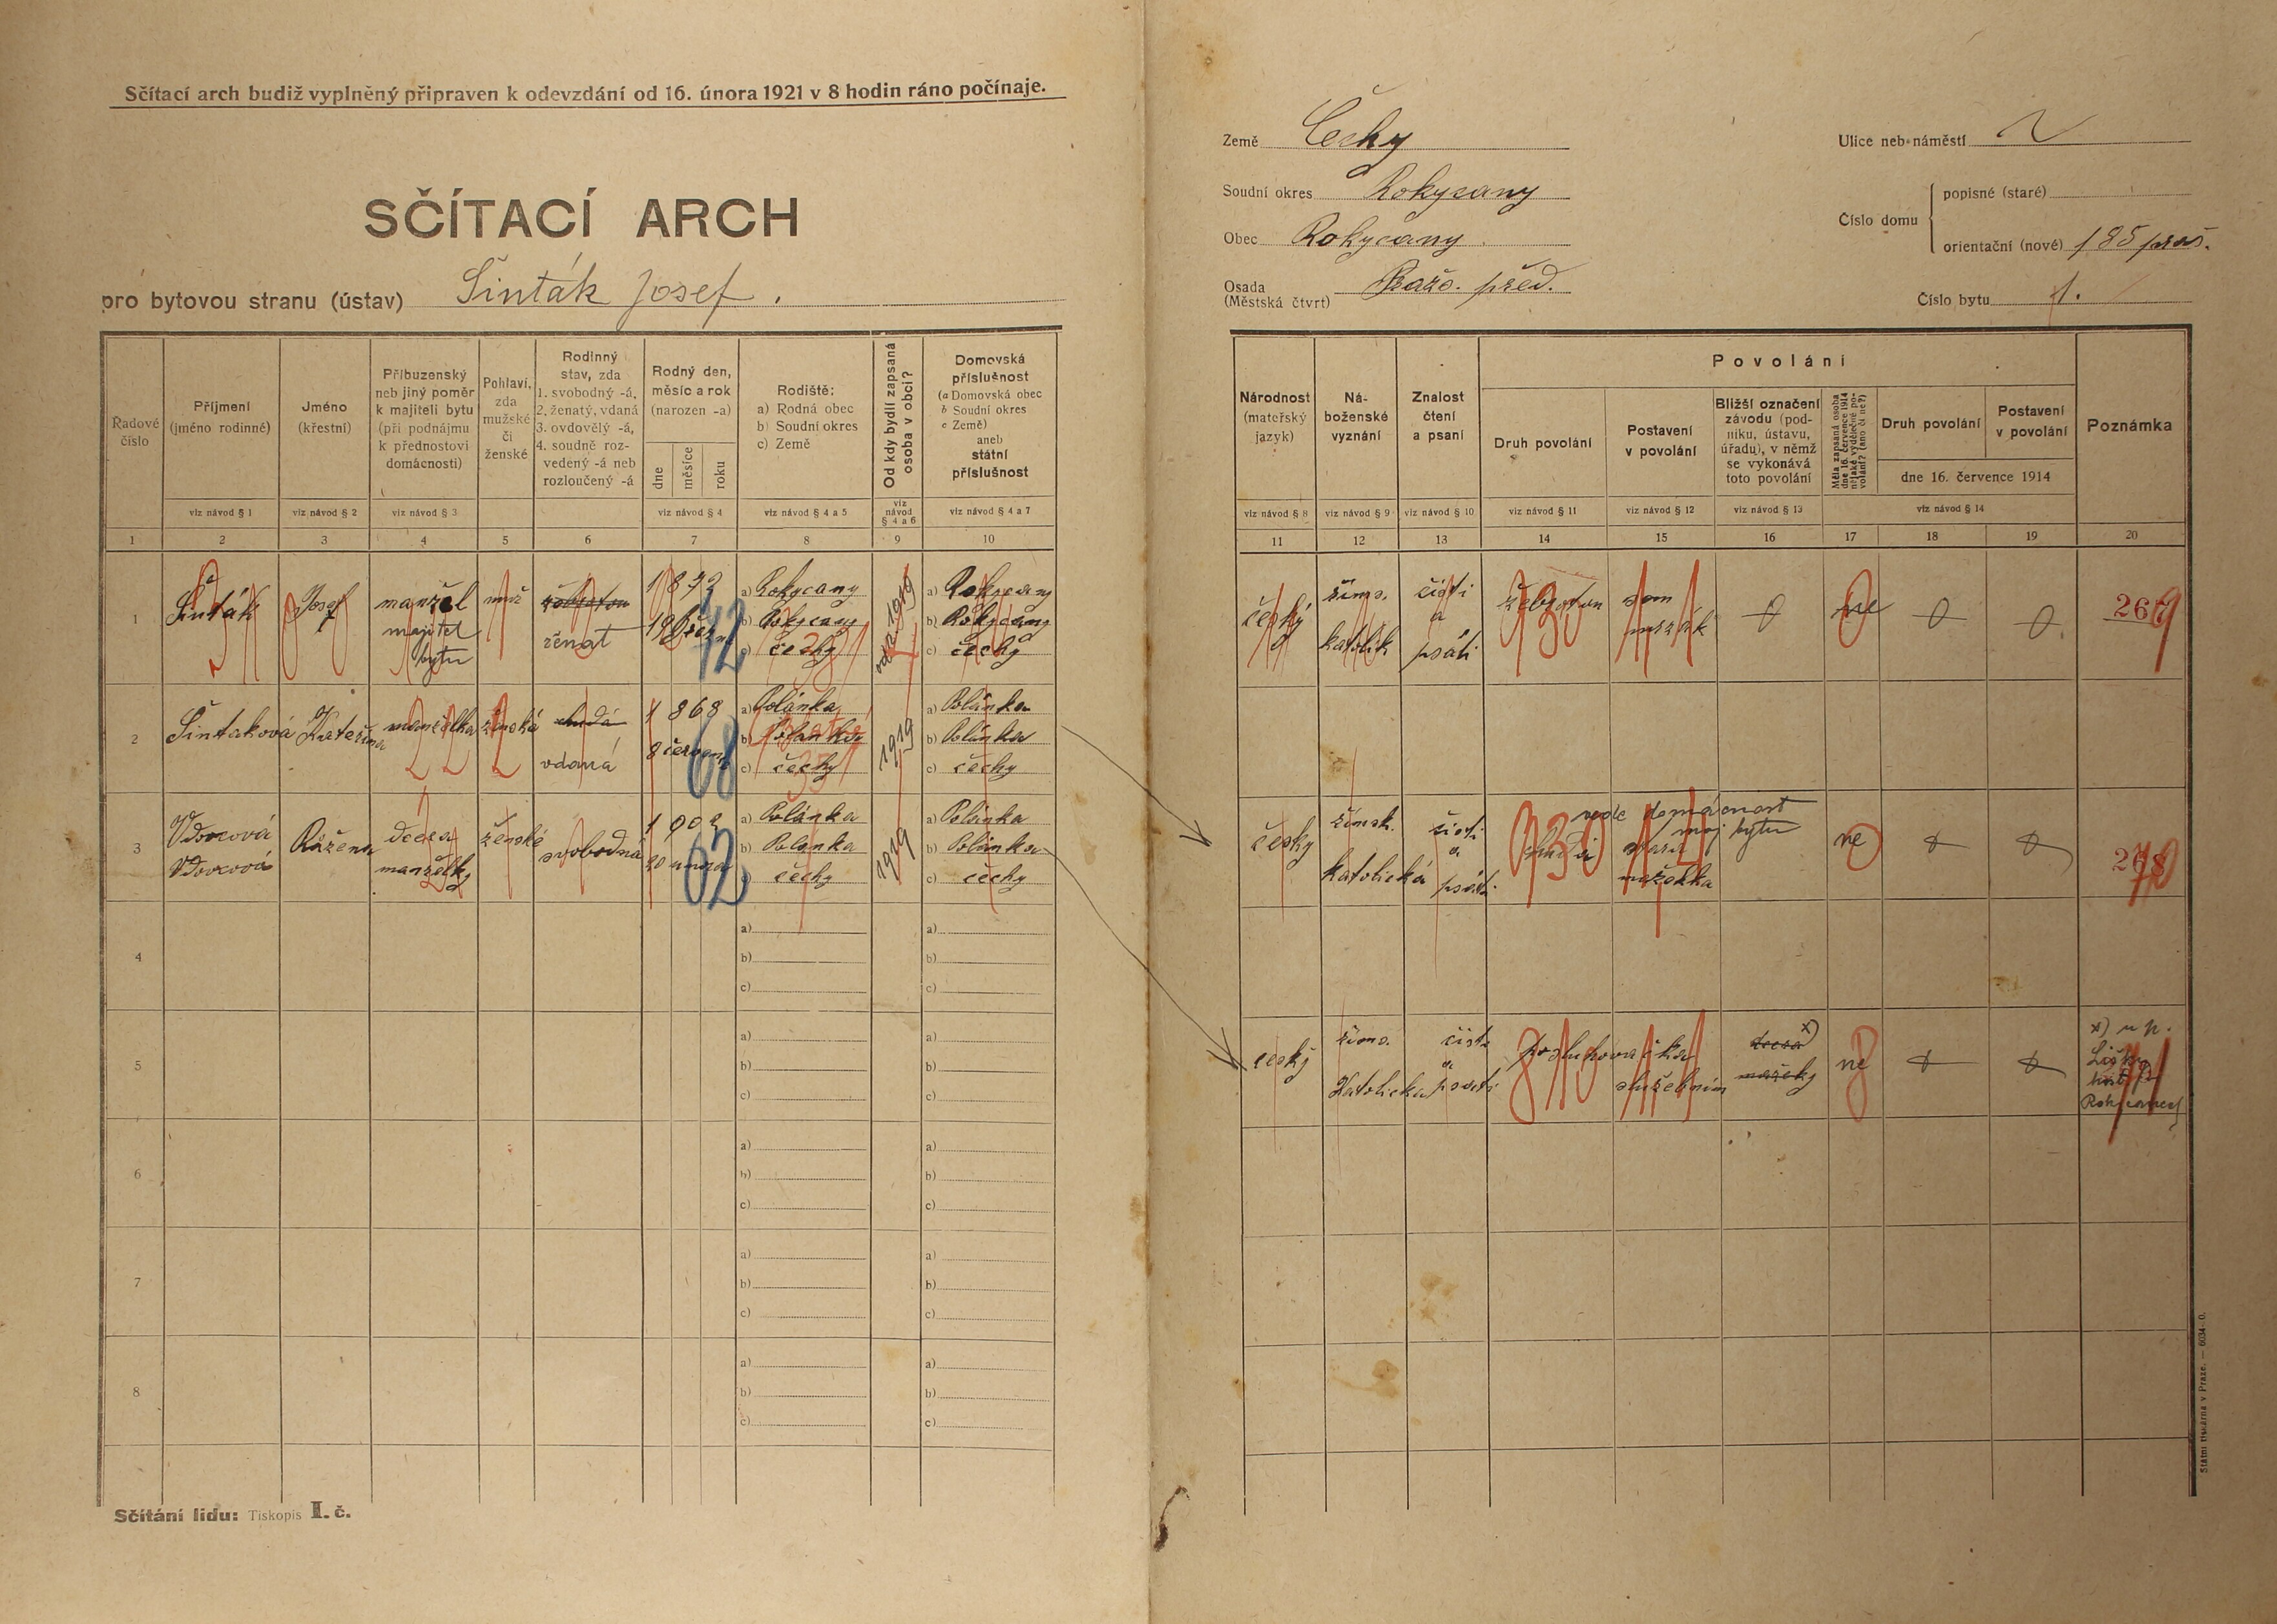 Sčítací arch budiž vyplněný připraven k odevzdání od 16. února 1921 v 8 hodin ráno počínaje.
SČÍTACÍ ARCH
pro bytovou stranu (ústav) Šinták Josef.
Země Čechy
Soudní okres Rokycany
Obec Rokycany.
Osada
(Městská čtvrt) Praž. před.
Ulice neb náměstí
Číslo domu
popisné (staré)
orientační (nové) 185 praž.
Číslo bytu 1.
Řadové
číslo
Příjmení
(jméno rodinné)
Jméno
(křestní)
Příbuzenský
neb jiný poměr
k majiteli bytu
(při podnájmu
k přednostovi
domácnosti)
Pohlaví,
zda
mužské
či
ženské
Rodinný
stav, zda
1. svobodný -á,
2. ženatý, vdaná
3. ovdovělý -á,
4. soudně roz-
vedený -á neb
rozloučený -á
Rodný den,
měsíc a rok
(narozen -a)
dne
měsíce
roku
Rodiště:
a) Rodná obec
b) Soudní okres
c) Země
Od kdy bydlí zapsaná
osoba v obci?
Domovská
příslušnost
(a Domovská obec
b Soudní okres
c Země)
aneb
státní
příslušnost
viz návod § 1
viz návod § 2
viz návod § 3
viz návod § 4
viz návod § 4 a 5
viz
návod
§ 4 a 6
viz návod § 4 a 7
1 2 3 4 5 6 7 8 9 10
Národnost
(mateřský
jazyk)
Ná-
boženské
vyznání
Znalost
čtení
a psaní
Povolání
Druh povolání
Postavení
v povolání
Bližší označení
závodu (pod-
niku, ústavu,
úřadu), v němž
se vykonává
toto povolání
Měla zapsaná osoba
dne 16. července 1914
nějaké výdělečné po-
volání? (ano či ne?)
Druh povolání
Postavení
v povolání
dne 16. července 1914
Poznámka
viz návod § 8
viz návod § 9
viz návod § 10
viz návod § 11
viz návod § 12
viz návod § 13
viz návod § 14
11 12 13 14 15 16 17 18 19 20
1
Šinták
Josef
manžel
majitel
bytu
muž
ženat
1872
19 března
72
a) Rokycany
b) Rokycany
c) čechy
od r. 1919
a) Rokycany
b) Rokycany
c) čechy
český
říms.
katolik
čísti
a
psáti
930
ne
0
2
Šintaková
Kateřina
manželka
ženská
vdaná
1868
8 července
68
a) Polánka
b) Polánka
c) čechy
1919
a) Polánka
b) Polánka
c) čechy
3
Vdovcová
Vdovcová
Růžena
dcera
manželky
ženské
svobodná
1902
20 února
02
a) Polánka
b) Polánka
c) čechy
1919
a) Polánka
b) Polánka
c) čechy
česky
římsk.
katolická
čisti
a
psáti
vede domácnost
maj bytu
930
ne
4
a)
b)
c)
a)
b)
c)
5
a)
b)
c)
a)
b)
c)
český
říms.
Katolická
čisti
a
psati
posluhovačka
služebním
810
x)
dcera
ne
x) u p.
Rokycanech
6
a)
b)
c)
a)
b)
c)
7
a)
b)
c)
a)
b)
c)
8
a)
b)
c)
a)
b)
c)
Sčítání lidu: Tiskopis I. č.
Státní tiskárna v Praze. — 6034-0.